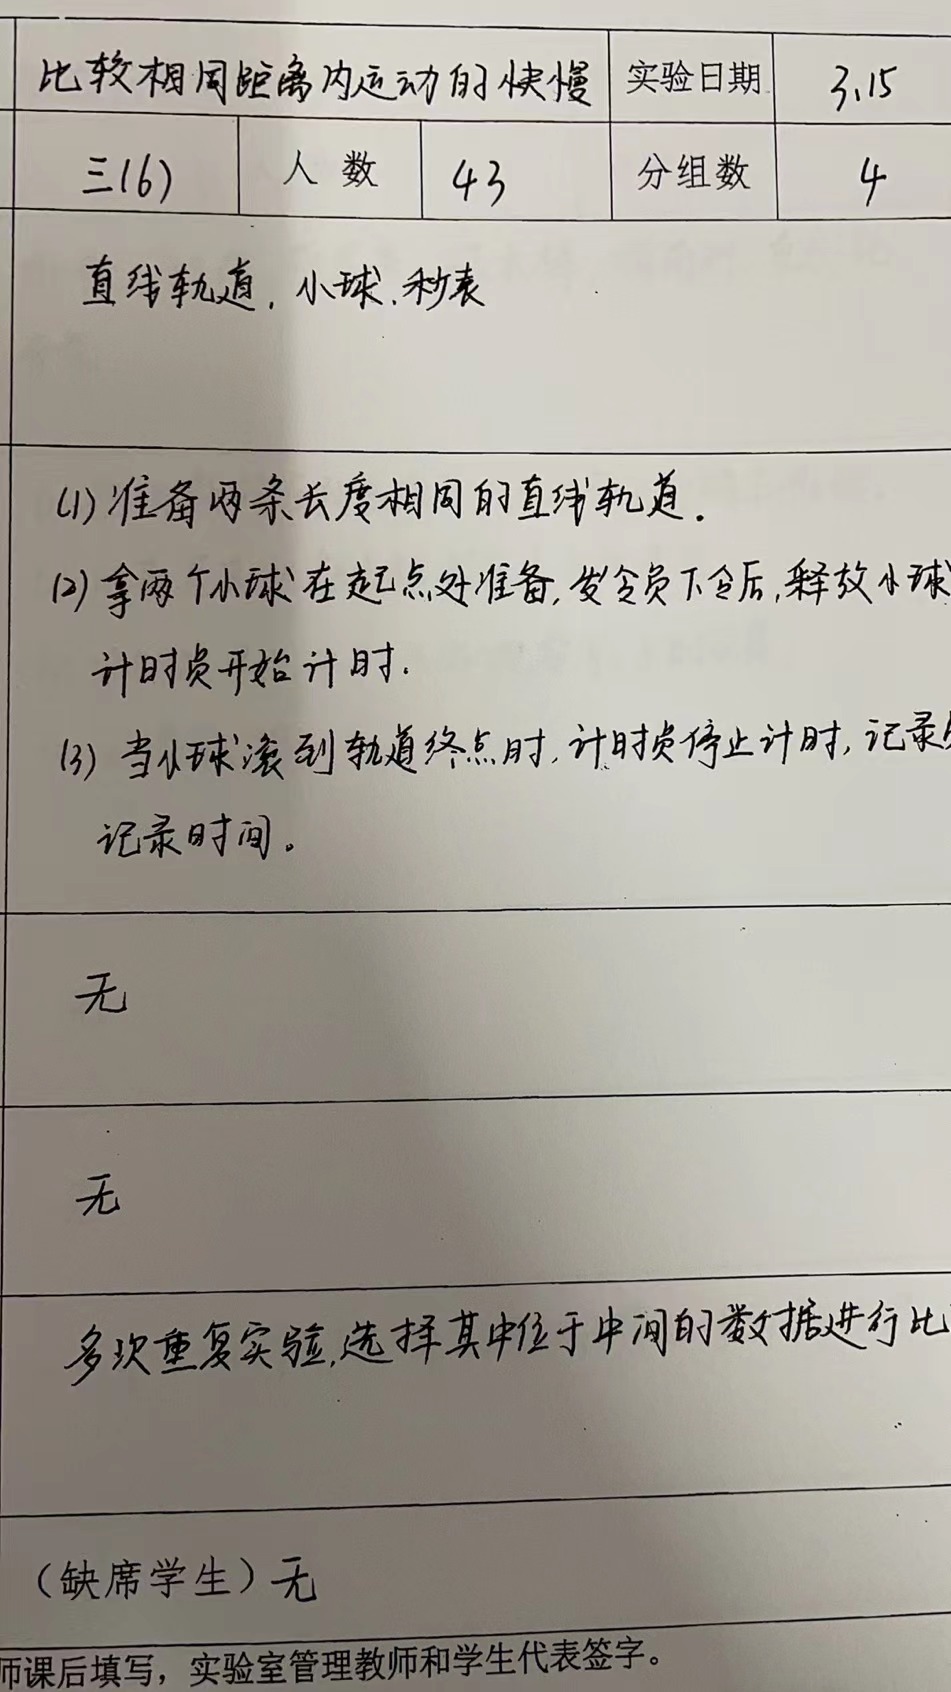 比较相同距离内运动的快慢 实验日期 3.15
三(6) 人数 43 分组数 4
直线轨道、小球、秒表
(1) 准备两条长度相同的直线轨道.
(2) 拿两个小球在起点处准备,发令员下令后,释放小球
计时员开始计时.
(3) 当小球滚到轨道终点时,计时员停止计时,记录
记录时间。
无
无
多次重复实验,选择其中位于中间的数据进行比
(缺席学生)无
师课后填写,实验室管理教师和学生代表签字。